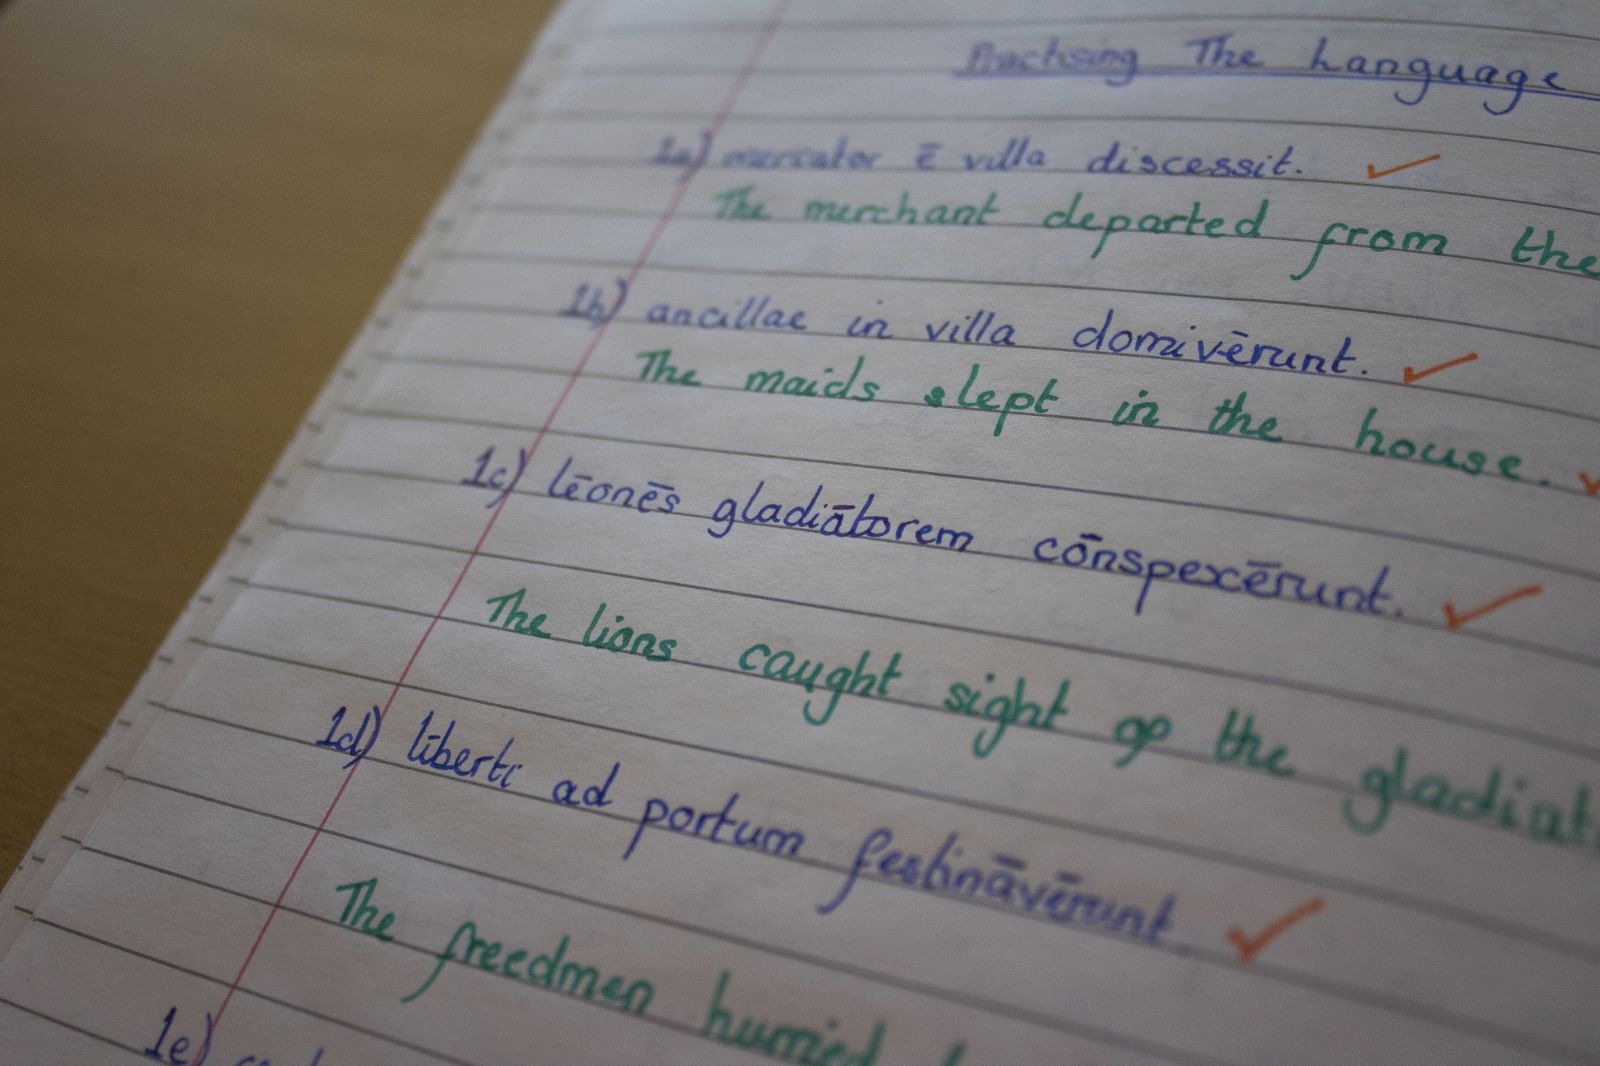 Practising The Language
1a) mercator ē villa discessit.
The merchant departed from the
1b) ancillae in villa domivērunt.
The maids slept in the house.
1c) lēonēs gladiātorem cōnspexērunt.
The lions caught sight of the gladiat
1d) līberti ad portum festināvērunt
The freedmen hurried
1e)